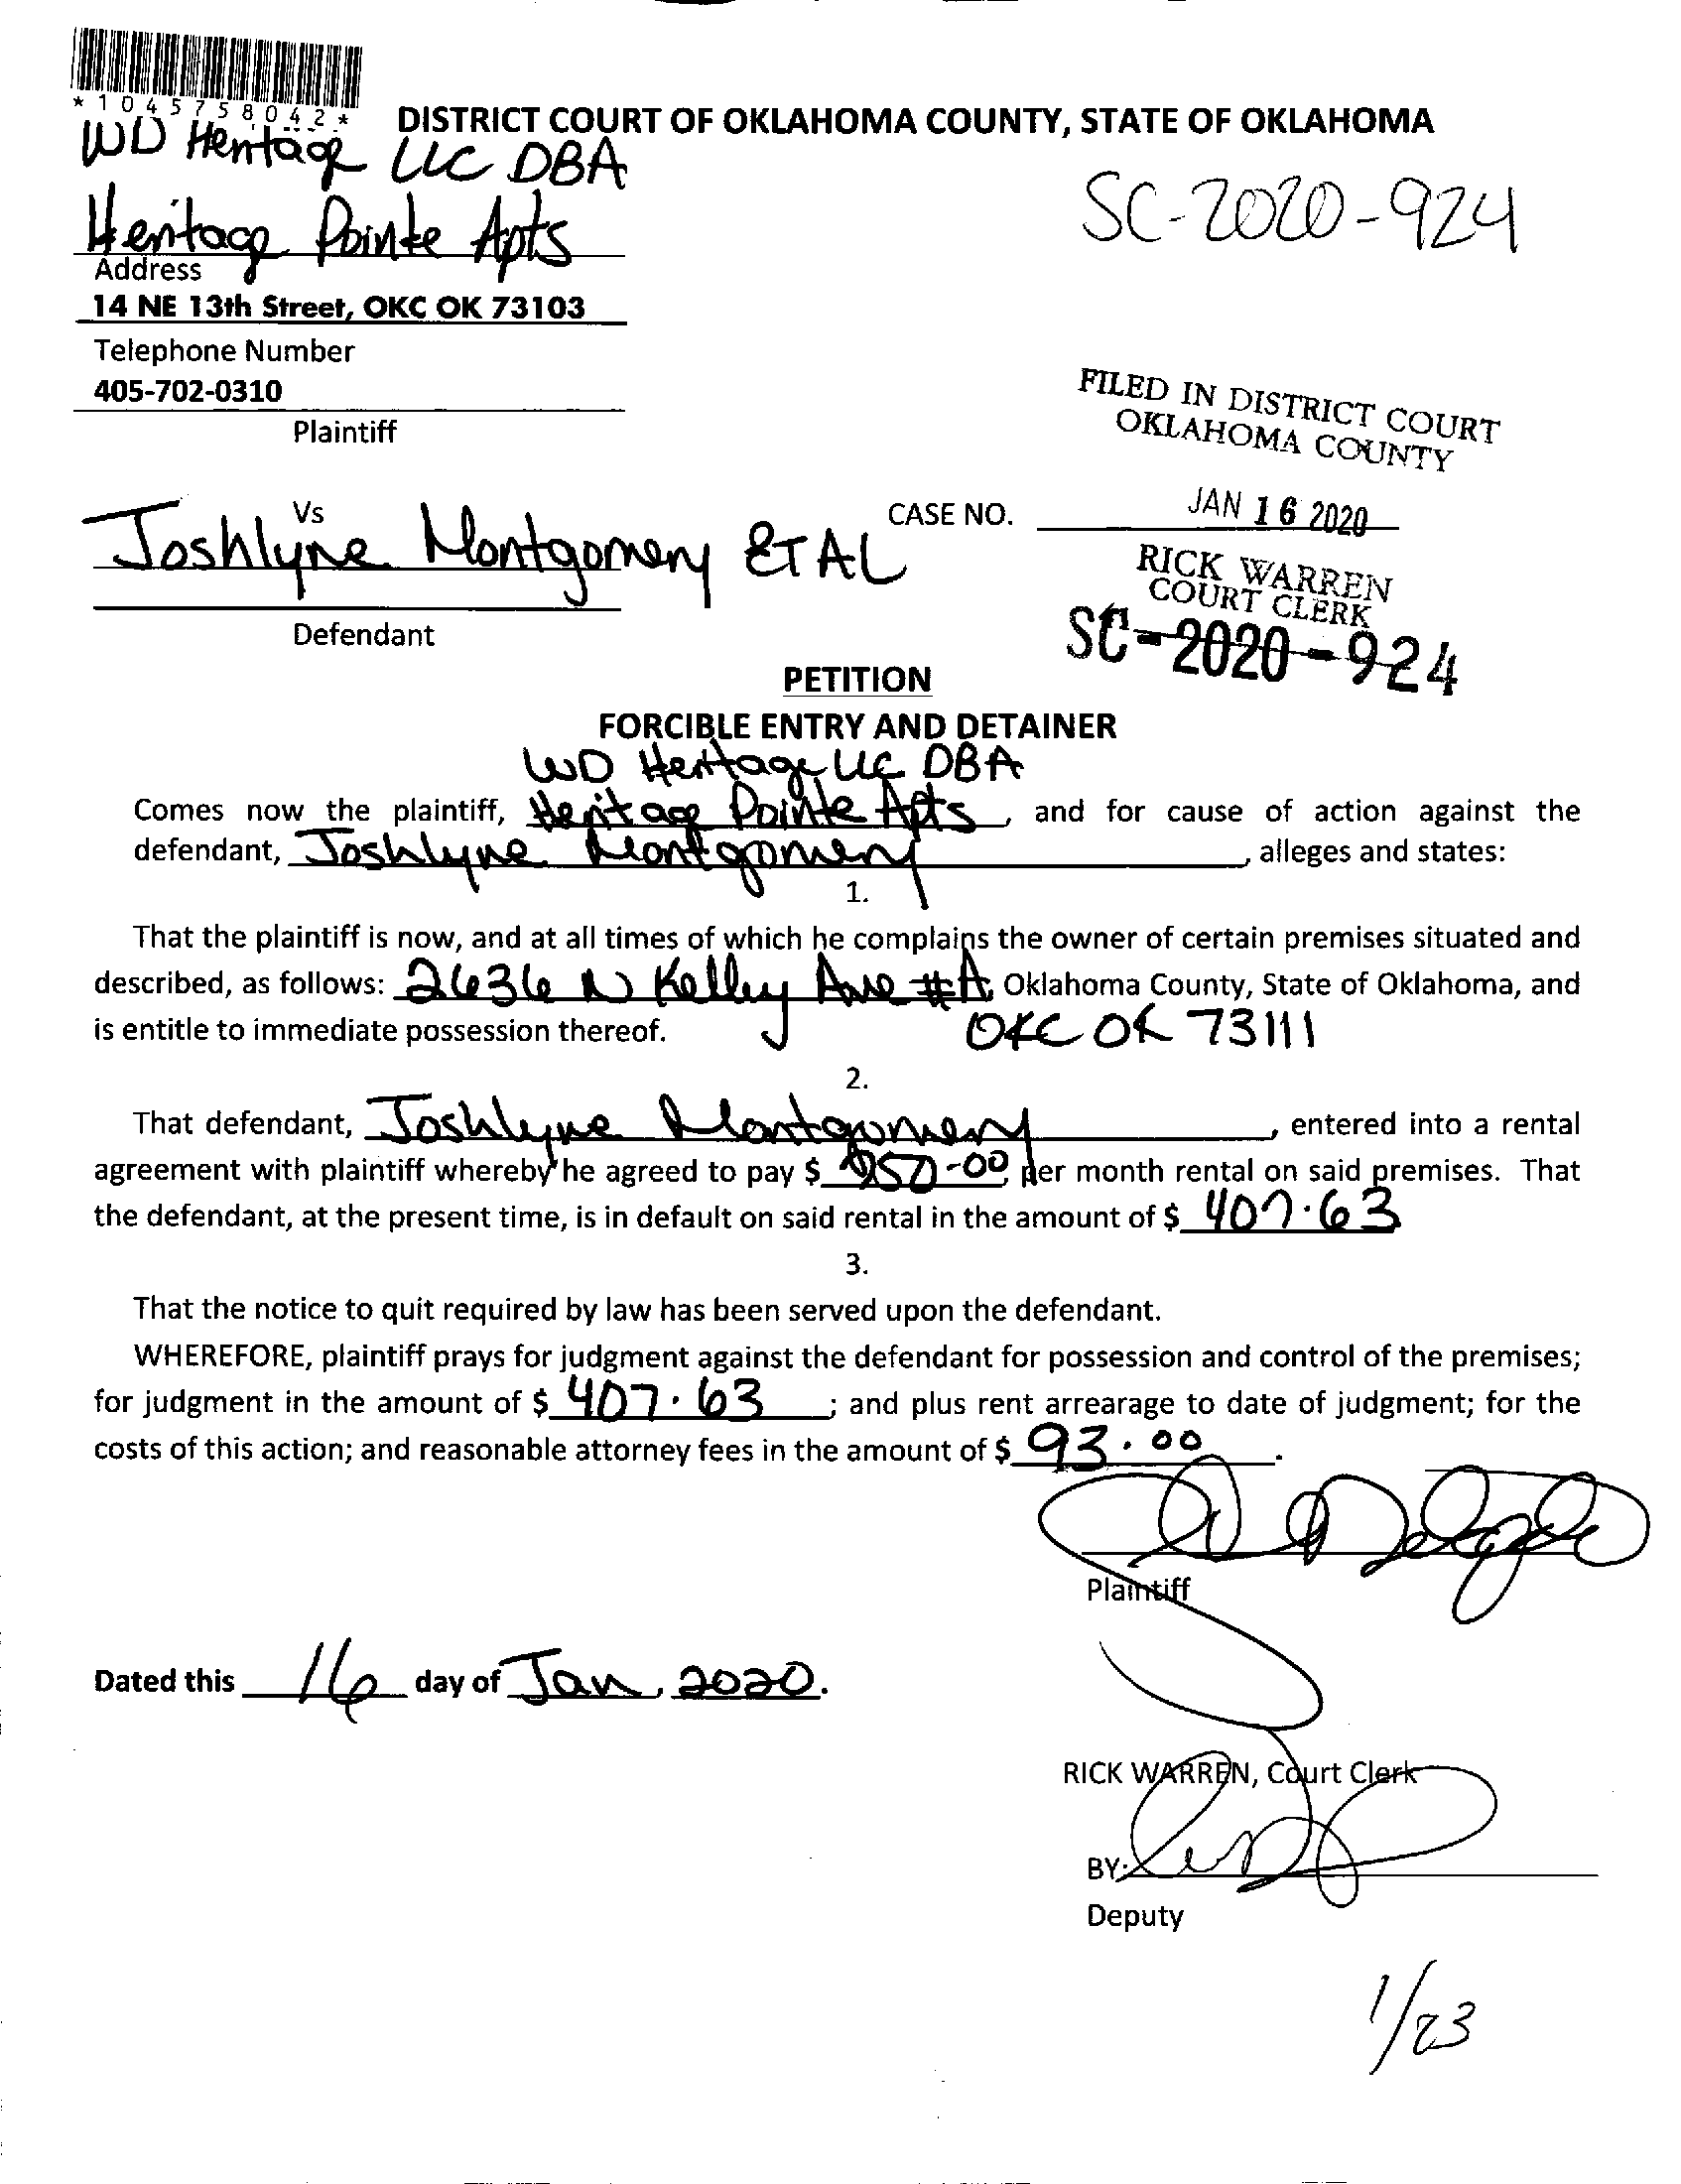 *1045758042*
DISTRICT COURT OF OKLAHOMA COUNTY, STATE OF OKLAHOMA
WD Heritage LLC DBA
Heritage Pointe Apts
SC-2020-924
Address
14 NE 13th Street, OKC OK 73103
Telephone Number
405-702-0310
Plaintiff
FILED IN DISTRICT COURT
OKLAHOMA COUNTY
JAN 16 2020
RICK WARREN
COURT CLERK
SC-2020-924
Vs
CASE NO.
Joshlyne Montgomery ET AL
Defendant
PETITION
FORCIBLE ENTRY AND DETAINER
WD Heritage LLC DBA
Comes now the plaintiff, Heritage Pointe Apts, and for cause of action against the
defendant, Joshlyne Montgomery, alleges and states:
1.
That the plaintiff is now, and at all times of which he complains the owner of certain premises situated and
described, as follows: 2636 N Kelley Ave #A, Oklahoma County, State of Oklahoma, and
is entitle to immediate possession thereof. OKC OK 73111
2.
That defendant, Joshlyne Montgomery, entered into a rental
agreement with plaintiff whereby he agreed to pay $ 50.00, per month rental on said premises. That
the defendant, at the present time, is in default on said rental in the amount of $ 407.63
3.
That the notice to quit required by law has been served upon the defendant.
WHEREFORE, plaintiff prays for judgment against the defendant for possession and control of the premises;
for judgment in the amount of $ 407.63; and plus rent arrearage to date of judgment; for the
costs of this action; and reasonable attorney fees in the amount of $ 93.00.
Plaintiff
Dated this 16 day of Jan, 2020.
RICK WARREN, Court Clerk
BY:
Deputy
1/23